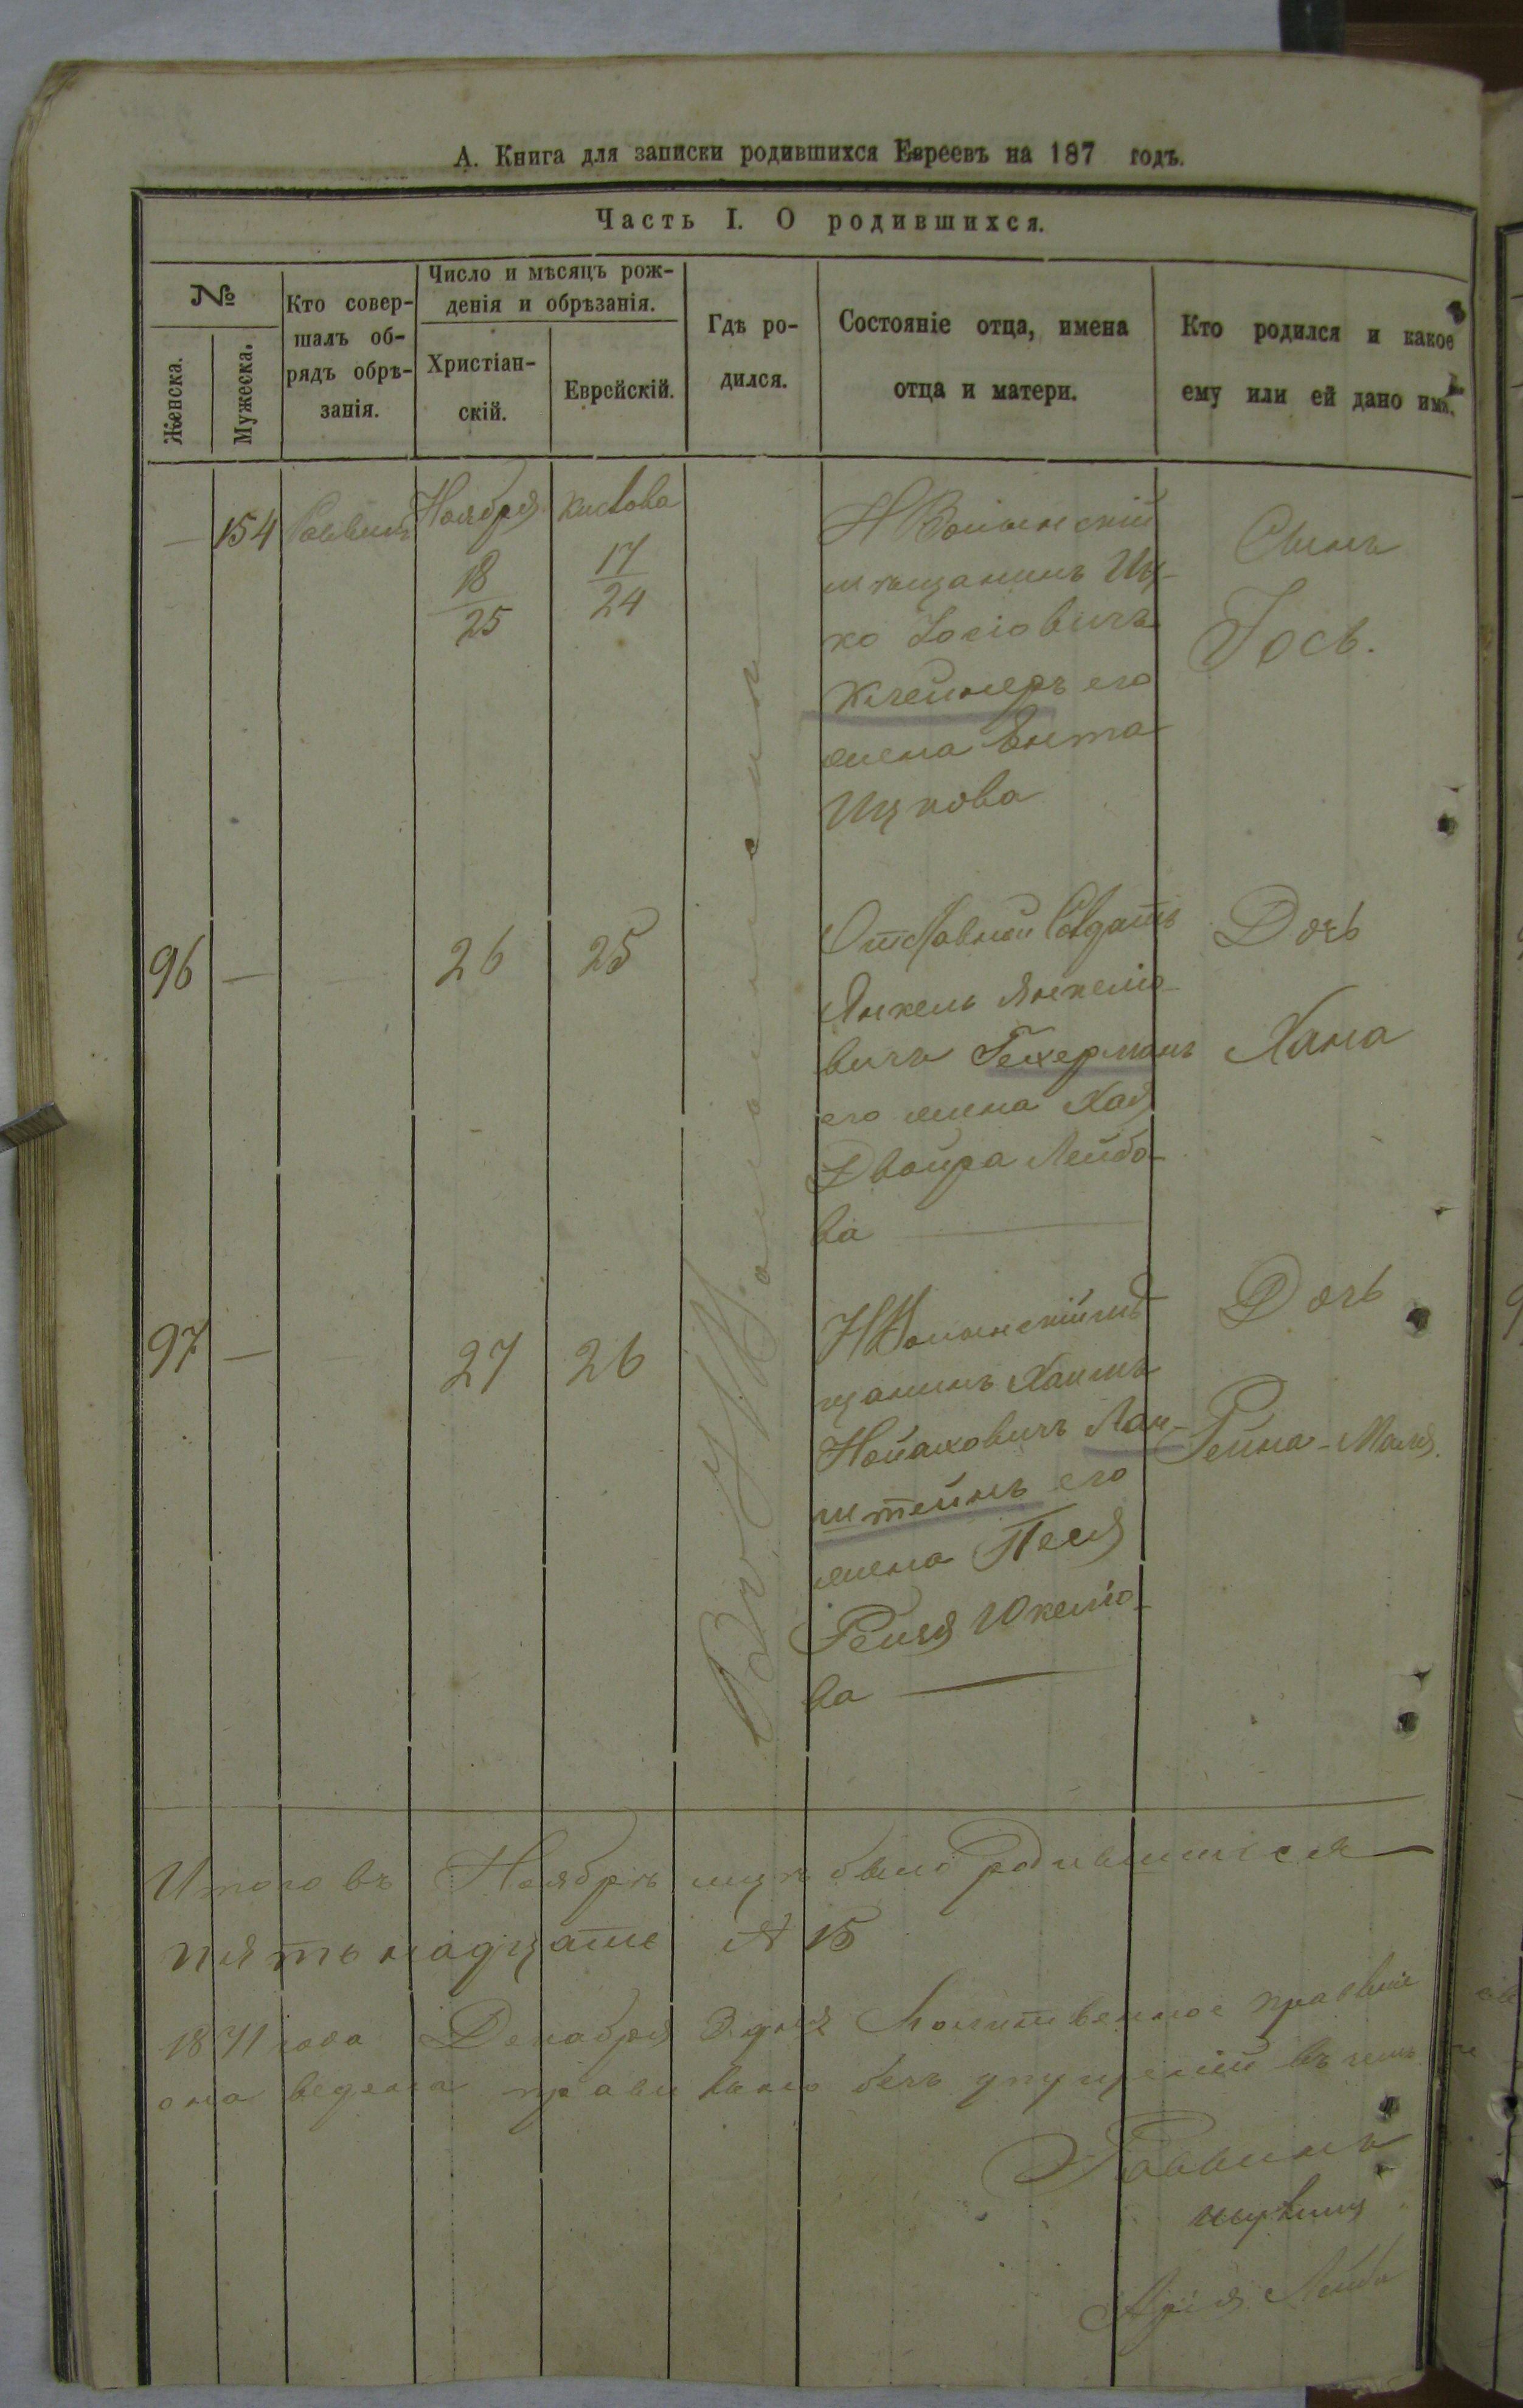 А. Книга для записки родившихся Евреевъ на 187 годъ.
Часть I. О родившихся.
№
Женска.
Мужеска.
Кто совер-
шалъ об-
рядъ обрѣ-
занія.
Число и мѣсяцъ рож-
денія и обрѣзанія.
Христіан-
скій.
Еврейскій.
Гдѣ ро-
дился.
Состояніе отца, имена
отца и матери.
Кто родился и какое
ему или ей дано имя.
— 154 Раввинъ
Ноября
18
25
Кислова
17
24
НВолынскій
мѣщанинъ Иц-
ко Іосіовичъ
Клейнеръ его
жена Ента
Ицкова
Сынъ
Іось.
96 — — 26 25
Отставной Солдатъ
Янкель Янкеліо-
вичъ Гехерманъ
его жена Хая
Двойра Лейбо-
ва
Дочь
Хана
97 — — 27 26
НВолынскій мѣ-
щанинъ Хаимъ
Нойаховичъ Лан-
штейнъ его
жена Песя
Рейзя Юкеліо-
ва
Дочь
Рейна-Маля.
Итого въ Ноябрѣ мцѣ было родившихся
пятьнадцать № 15
1871 года Декабря 3 дня Молитвенное правленіе
она ведена правильно безъ упущеній въ чемъ
Раввинъ
Арія Лейба